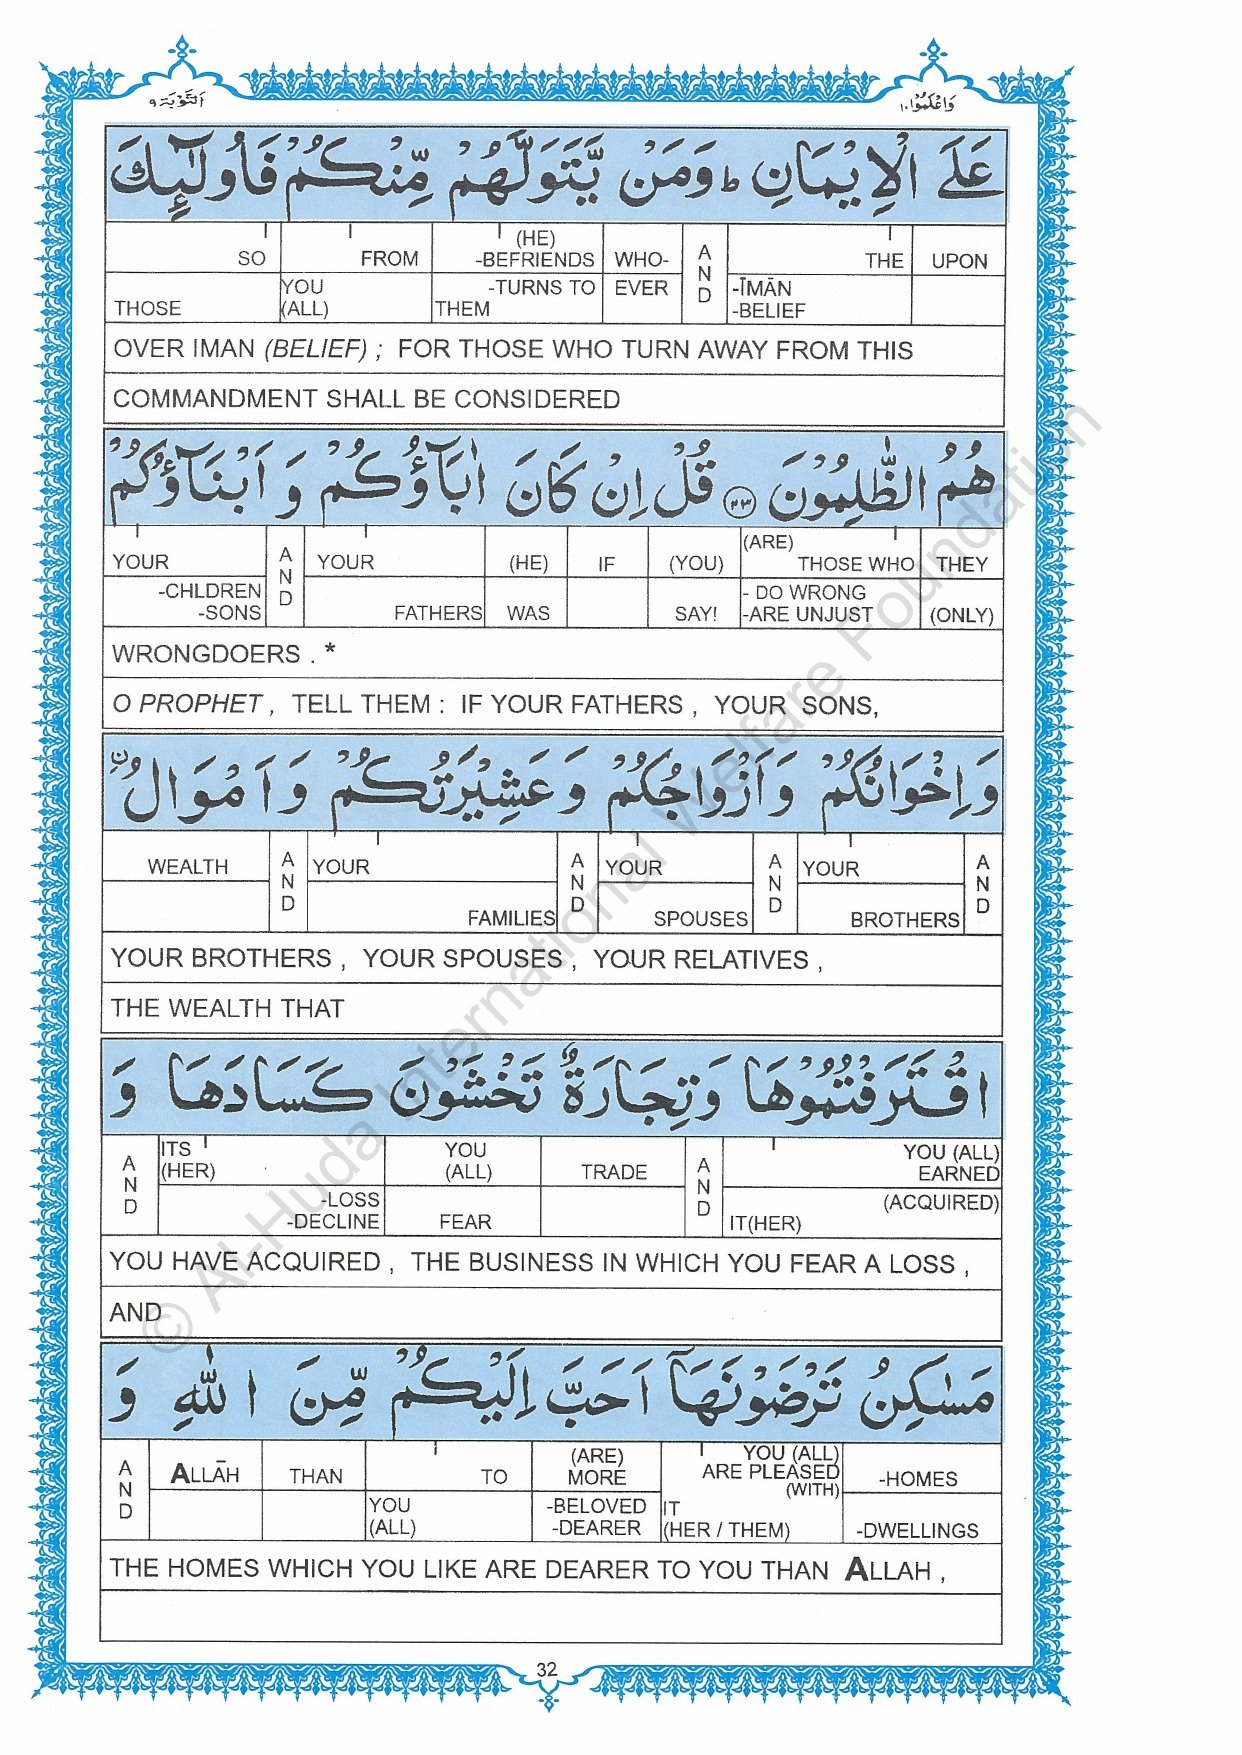 وَاعْلَمُوْا١٠ اَلتَّوْبَة٩
عَلَى الْاِيْمَانِ ؕ وَمَنْ يَّتَوَلَّهُمْ مِّنْكُمْ فَاُولٰٓئِكَ
SO FROM (HE) -BEFRIENDS WHO- AND THE UPON
THOSE YOU (ALL) -TURNS TO THEM EVER -ĪMĀN -BELIEF
OVER IMAN (BELIEF) ; FOR THOSE WHO TURN AWAY FROM THIS
COMMANDMENT SHALL BE CONSIDERED
هُمُ الظّٰلِمُوْنَ ۝٢٣ قُلْ اِنْ كَانَ اٰبَآؤُكُمْ وَ اَبْنَآؤُكُمْ
YOUR AND YOUR (HE) IF (YOU) (ARE) THOSE WHO THEY
-CHLDREN -SONS FATHERS WAS SAY! - DO WRONG -ARE UNJUST (ONLY)
WRONGDOERS . *
O PROPHET , TELL THEM : IF YOUR FATHERS , YOUR SONS,
وَاِخْوَانُكُمْ وَاَزْوَاجُكُمْ وَعَشِيْرَتُكُمْ وَاَمْوَالُ
WEALTH AND YOUR AND YOUR AND YOUR AND
FAMILIES SPOUSES BROTHERS
YOUR BROTHERS , YOUR SPOUSES , YOUR RELATIVES ,
THE WEALTH THAT
اقْتَرَفْتُمُوْهَا وَتِجَارَةٌ تَخْشَوْنَ كَسَادَهَا وَ
AND ITS (HER) YOU (ALL) TRADE AND YOU (ALL) EARNED
-LOSS -DECLINE FEAR (ACQUIRED) IT(HER)
YOU HAVE ACQUIRED , THE BUSINESS IN WHICH YOU FEAR A LOSS ,
AND
مَسٰكِنُ تَرْضَوْنَهَآ اَحَبَّ اِلَيْكُمْ مِّنَ اللّٰهِ وَ
AND ALLĀH THAN TO (ARE) MORE YOU (ALL) ARE PLEASED (WITH) -HOMES
YOU (ALL) -BELOVED -DEARER IT (HER / THEM) -DWELLINGS
THE HOMES WHICH YOU LIKE ARE DEARER TO YOU THAN ALLAH ,
32
© Al-Huda International Welfare Foundation